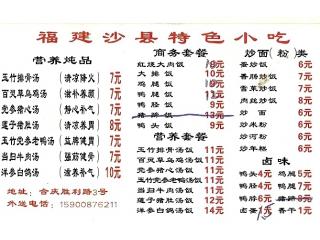 福建沙县特色小吃
营养炖品
玉竹排骨汤 （清凉降火） 7元
百灵草乌鸡汤 （滋补养颜） 7元
党参猪心汤 （静心补气） 7元
莲子猪肚汤 （清凉养胃） 8元
玉竹党参老鸭汤 （益脾健胃） 7元
当归牛肉汤 （强筋健骨） 7元
洋参白鸽汤 （补气） 10元
地址：合庆胜利路3号
外送电话：15900876211
商务套餐
红烧大肉饭
大排饭
鸡腿饭
鸭腿饭
鸭胗饭 9元
猪蹄饭 13元
鸭头饭 9元
营养套餐
玉竹排骨汤饭 11元
百灵草乌鸡汤饭 11元
党参猪心汤饭 11元
玉竹党参老鸭汤饭 11元
当归牛肉汤饭 11元
莲子猪肚汤饭 12元
洋参白鸽汤饭 14元
炒面（粉）类
蛋炒饭 6元
香肠炒饭 7元
雪菜炒饭 7元
肉丝炒饭 8元
炒面 6元
炒粉 6元
炒河粉 6元
炒年糕 6元
卤味
鸭头4元 鸡腿5元
鸭胗4元 鸭腿7元
猪蹄8元
卤蛋1元 香干1元